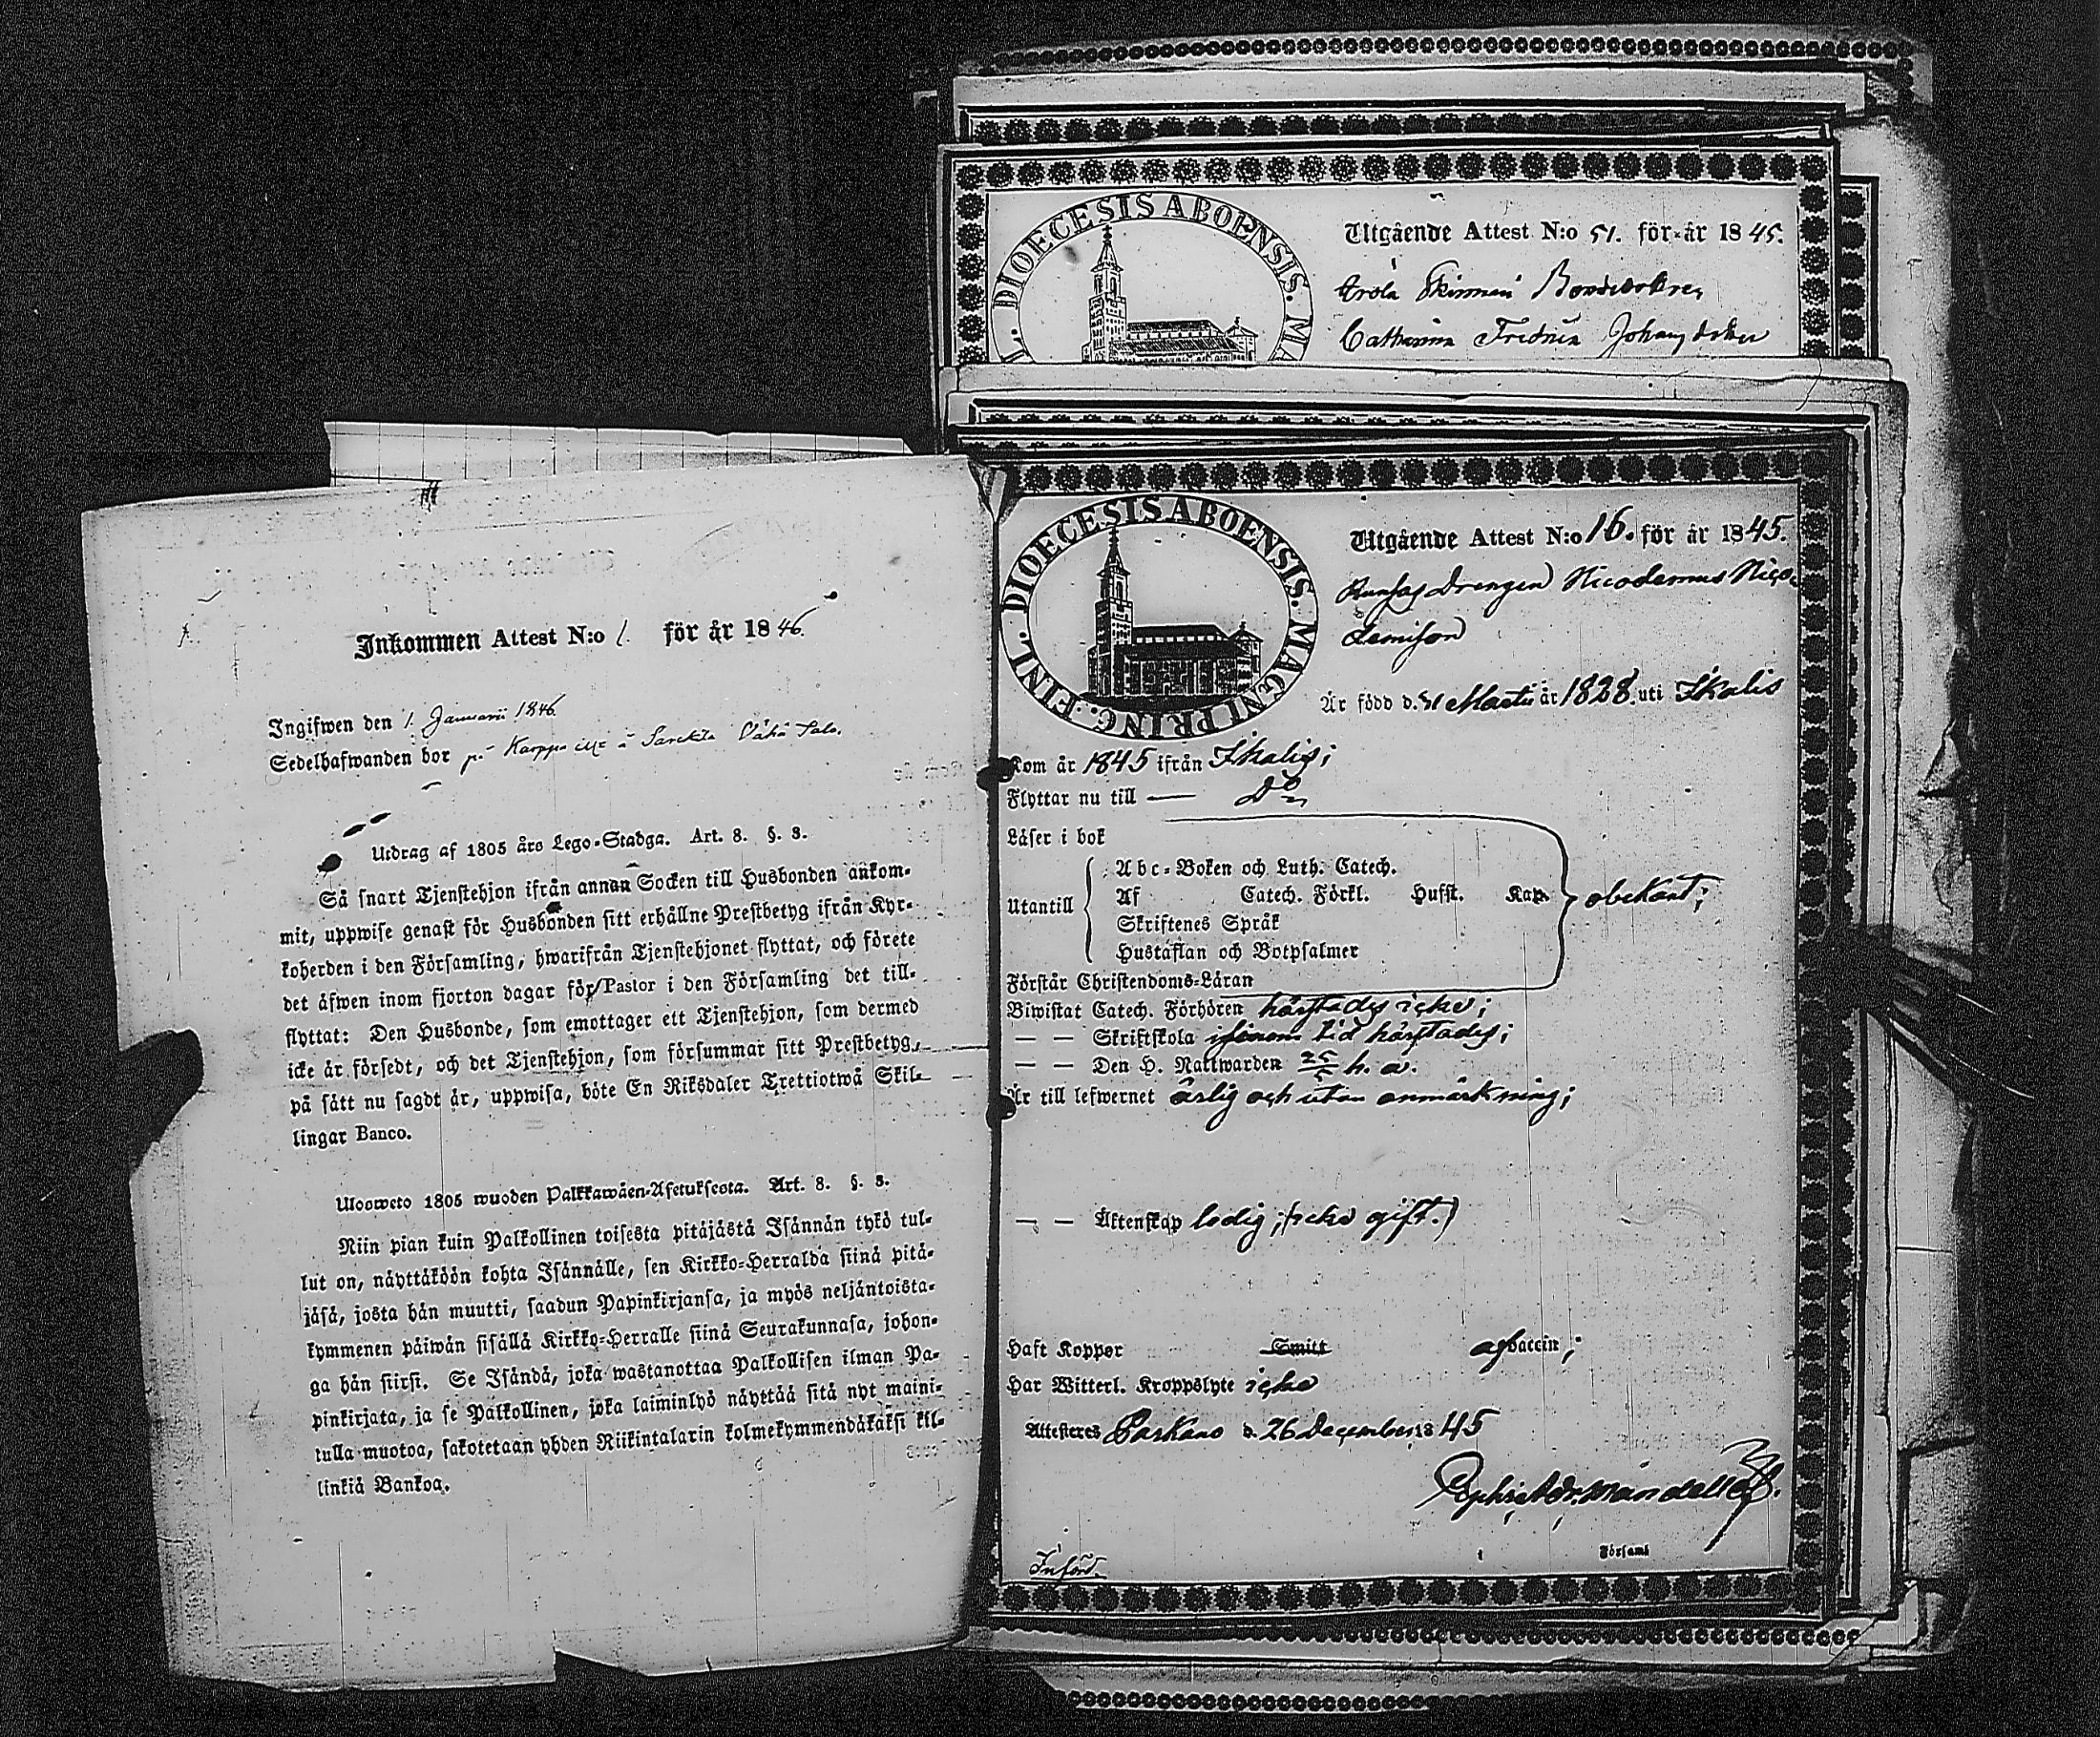 DIOECESIS ABOENSIS. MA
Utgående Attest N:o 51. för år 1845.
Catharina Johansdotter
Inkommen Attest N:o 1. för år 1846.
Ingifwen den 1. Januarii 1846.
Sedelhafwanden bor på Karppi Wähä Salo.
Utdrag af 1805 års Lego-Stadga. Art. 8. §. 3.
Så snart Tjenstehjon ifrån annan Socken till Husbonden ankom-
mit, uppwise genast för Husbonden sitt erhållne Prestbetyg ifrån Kyr-
koherden i den Församling, hwarifrån Tjenstehjonet flyttat, och förete
det äfwen inom fjorton dagar för Pastor i den Församling det till-
flyttat: Den Husbonde, som emottager ett Tjenstehjon, som dermed
icke är försedt, och det Tjenstehjon, som försummar sitt Prestbetyg,
på sätt nu sagdt är, uppwisa, böte En Riksdaler Trettiotwå Skil-
lingar Banco.
Ulosweto 1805 wuoden Palkkawäen-Asetuksesta. Art. 8. §. 3.
Niin pian kuin Palkollinen toisesta pitäjästä Isännän tykö tul-
lut on, näyttäköön kohta Isännälle, sen Kirkko-Herralda siinä pitä-
jäsä, josta hän muutti, saadun Papinkirjansa, ja myös neljäntoista-
kymmenen päiwän sisällä Kirkko-Herralle siinä Seurakunnasa, johon-
ga hän siirsi. Se Isändä, joka wastanottaa Palkollisen ilman Pa-
pinkirjata, ja se Palkollinen, joka laiminlyö näyttää sitä nyt maini-
tulla muotoa, sakotetaan yhden Riikintalarin kolmekymmendäkaksi kil-
linkiä Bankoa.
DIOECESIS ABOENSIS. MAGNI PRINC. FINL.
Utgående Attest N:o 16. för år 1845.
Drengen Nicodemus Nico-
demison
Är född d. 31 Martii år 1828. uti Ikalis
Kom år 1845 ifrån Ikalis;
Flyttar nu till — Do
Läser i bok
Utantill
Abc-Boken och Luth. Catech.
Af Catech. Förkl. Hufst. Kap.
Skriftenes Språk
Hustaflan och Botpsalmer
obekant;
Förstår Christendoms-Läran
Biwistat Catech. Förhören härstades icke;
— — Skriftskola tid härstades;
— — Den H. Nattwarden 25/5 h. a.
Är till lefwernet ärlig och utan anmärkning;
— — Äktenskap ledig; (icke gift.)
Haft Koppor Smitt af vaccin;
Har Witterl. Kroppslyte icke
Attesteres Parkano d. 26 December 1845
Församl
Införd.